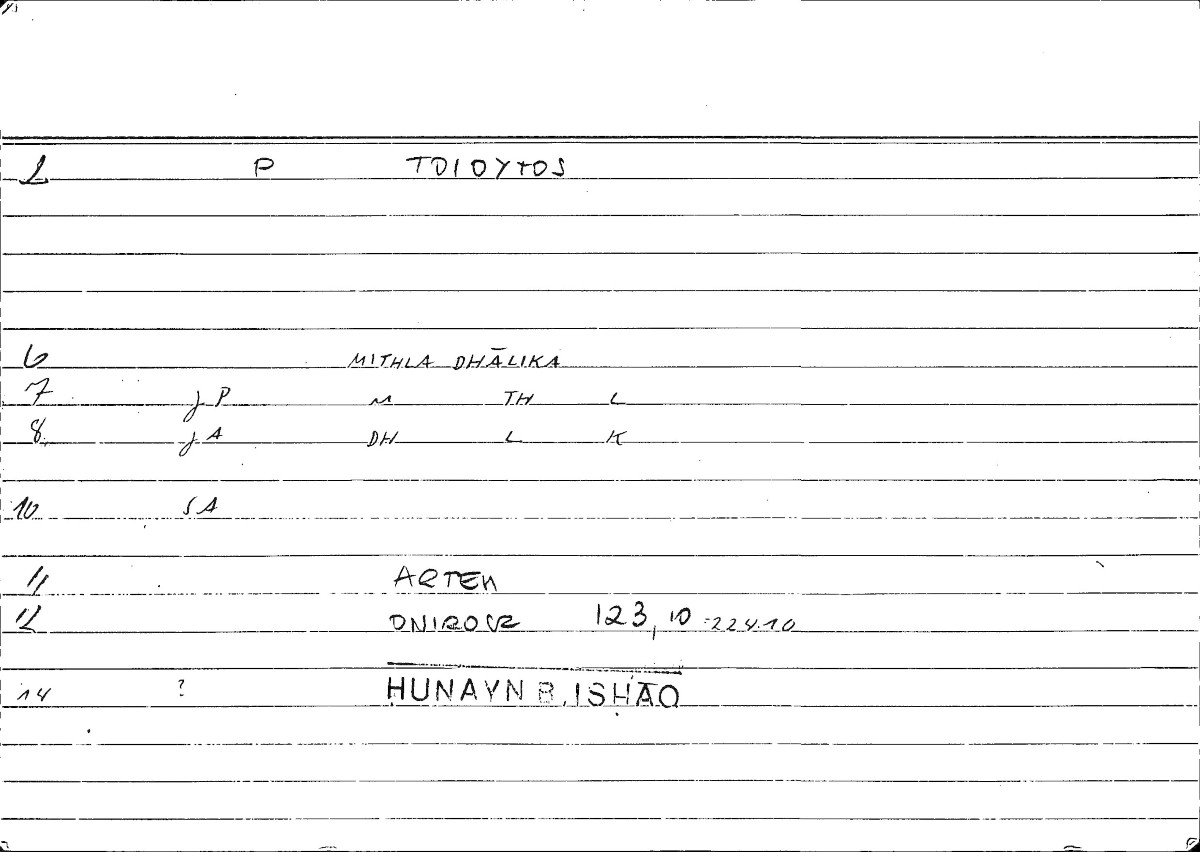 1 P TOIOYTOS
6 MITHLA DHĀLIKA
7 jP M TH L
8 jA DH L K
10 SA
11 ARTEM
12 ONIROCR 123,10 = 224.10
14 ? ḤUNAYN B. ISḤĀQ